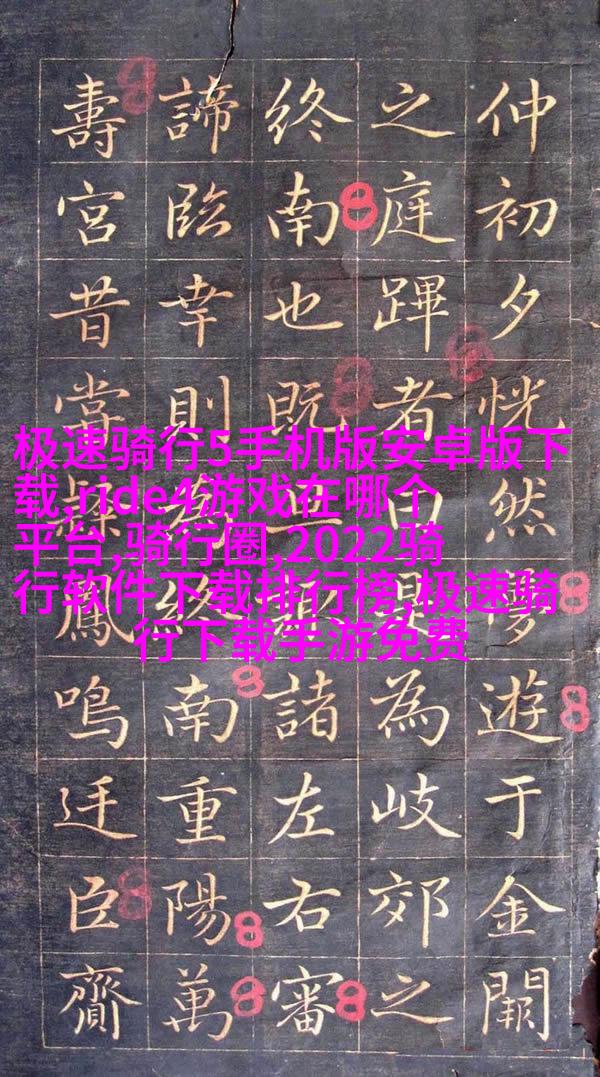 仲初夕恍然遊于金闕
之庭蹕者曰為岐郊之
終南也既諸左右審
諦臨幸則終南重陽萬
壽宮昔鳳鳴迁臣齎
极速骑行5手机版安卓版下
载,ride4游戏在哪个
平台,骑行圈,2022骑
行软件下载排行榜,极速骑
行下载手游免费